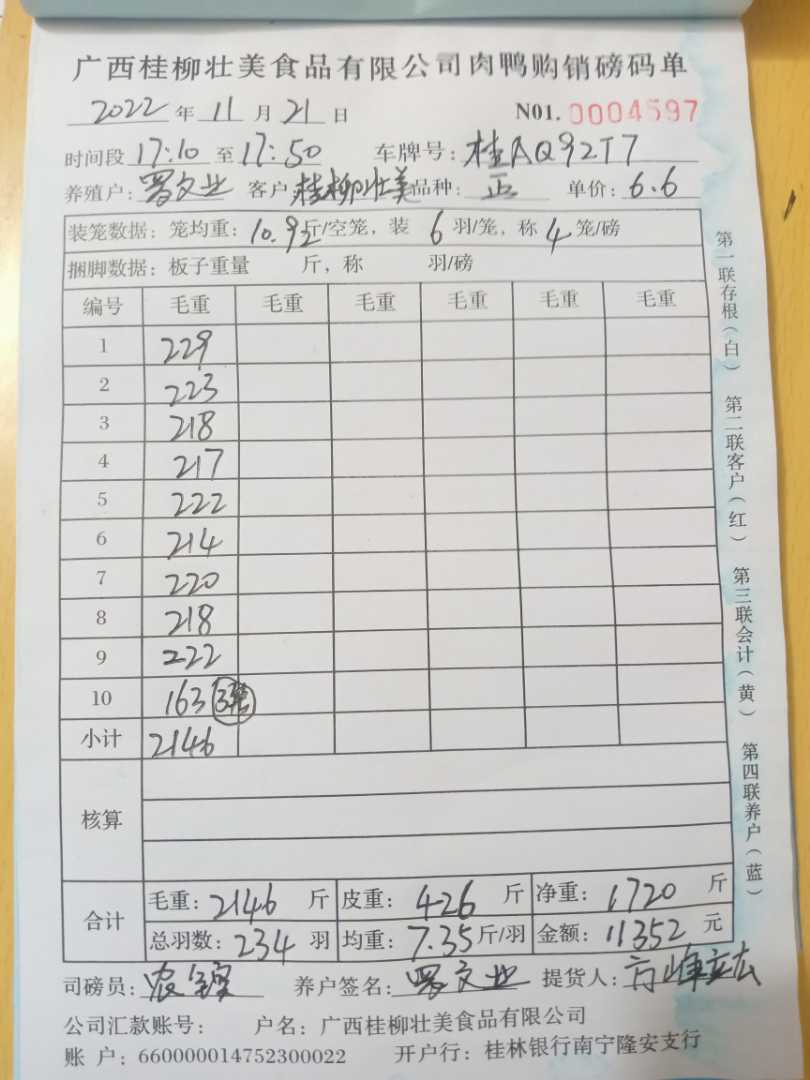 广西桂柳壮美食品有限公司肉鸭购销磅码单
2022 年 11 月 21 日 N01. 0004597
时间段 17:10 至 17:50 车牌号: 桂AQ92T7
养殖户: 罗文业 客户: 桂柳壮美 品种: 正 单价: 6.6
装笼数据: 笼均重: 10.92 斤/空笼, 装 6 羽/笼, 称 4 笼/磅
捆脚数据: 板子重量 斤, 称 羽/磅
编号 毛重 毛重 毛重 毛重 毛重 毛重
1 229
2 223
3 218
4 217
5 222
6 214
7 220
8 218
9 222
10 163 3笼
小计 2146
核算
合计 毛重: 2146 斤 皮重: 426 斤 净重: 1720 斤
总羽数: 234 羽 均重: 7.35 斤/羽 金额: 11352 元
司磅员: 农 养户签名: 罗文业 提货人:
公司汇款账号: 户名: 广西桂柳壮美食品有限公司
账 户: 660000014752300022 开户行: 桂林银行南宁隆安支行
第一联存根(白) 第二联客户(红) 第三联会计(黄) 第四联养户(蓝)